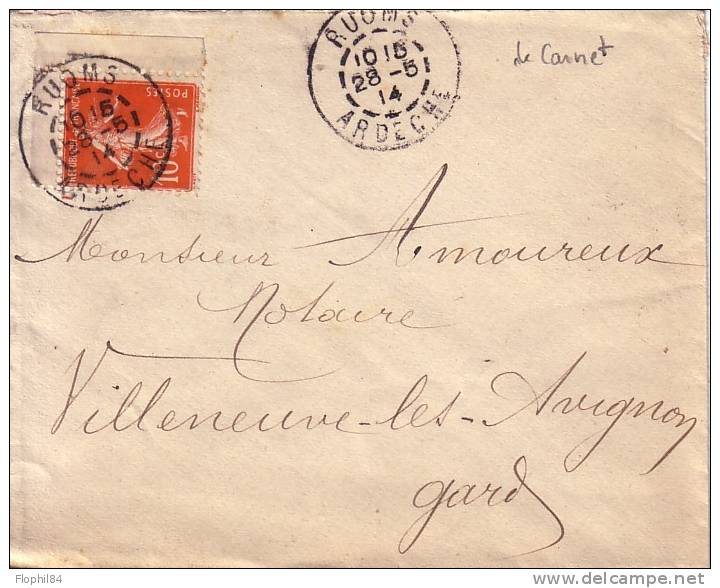 RUOMS
10 15
28 - 5
14
ARDECHE
de Carnet
RUOMS
10 15
28 - 5
14
ARDECHE
POSTES
10
Monsieur Amoureux
Notaire
Villeneuve-les-Avignon
Gard
Flophil84
www.delcampe.net